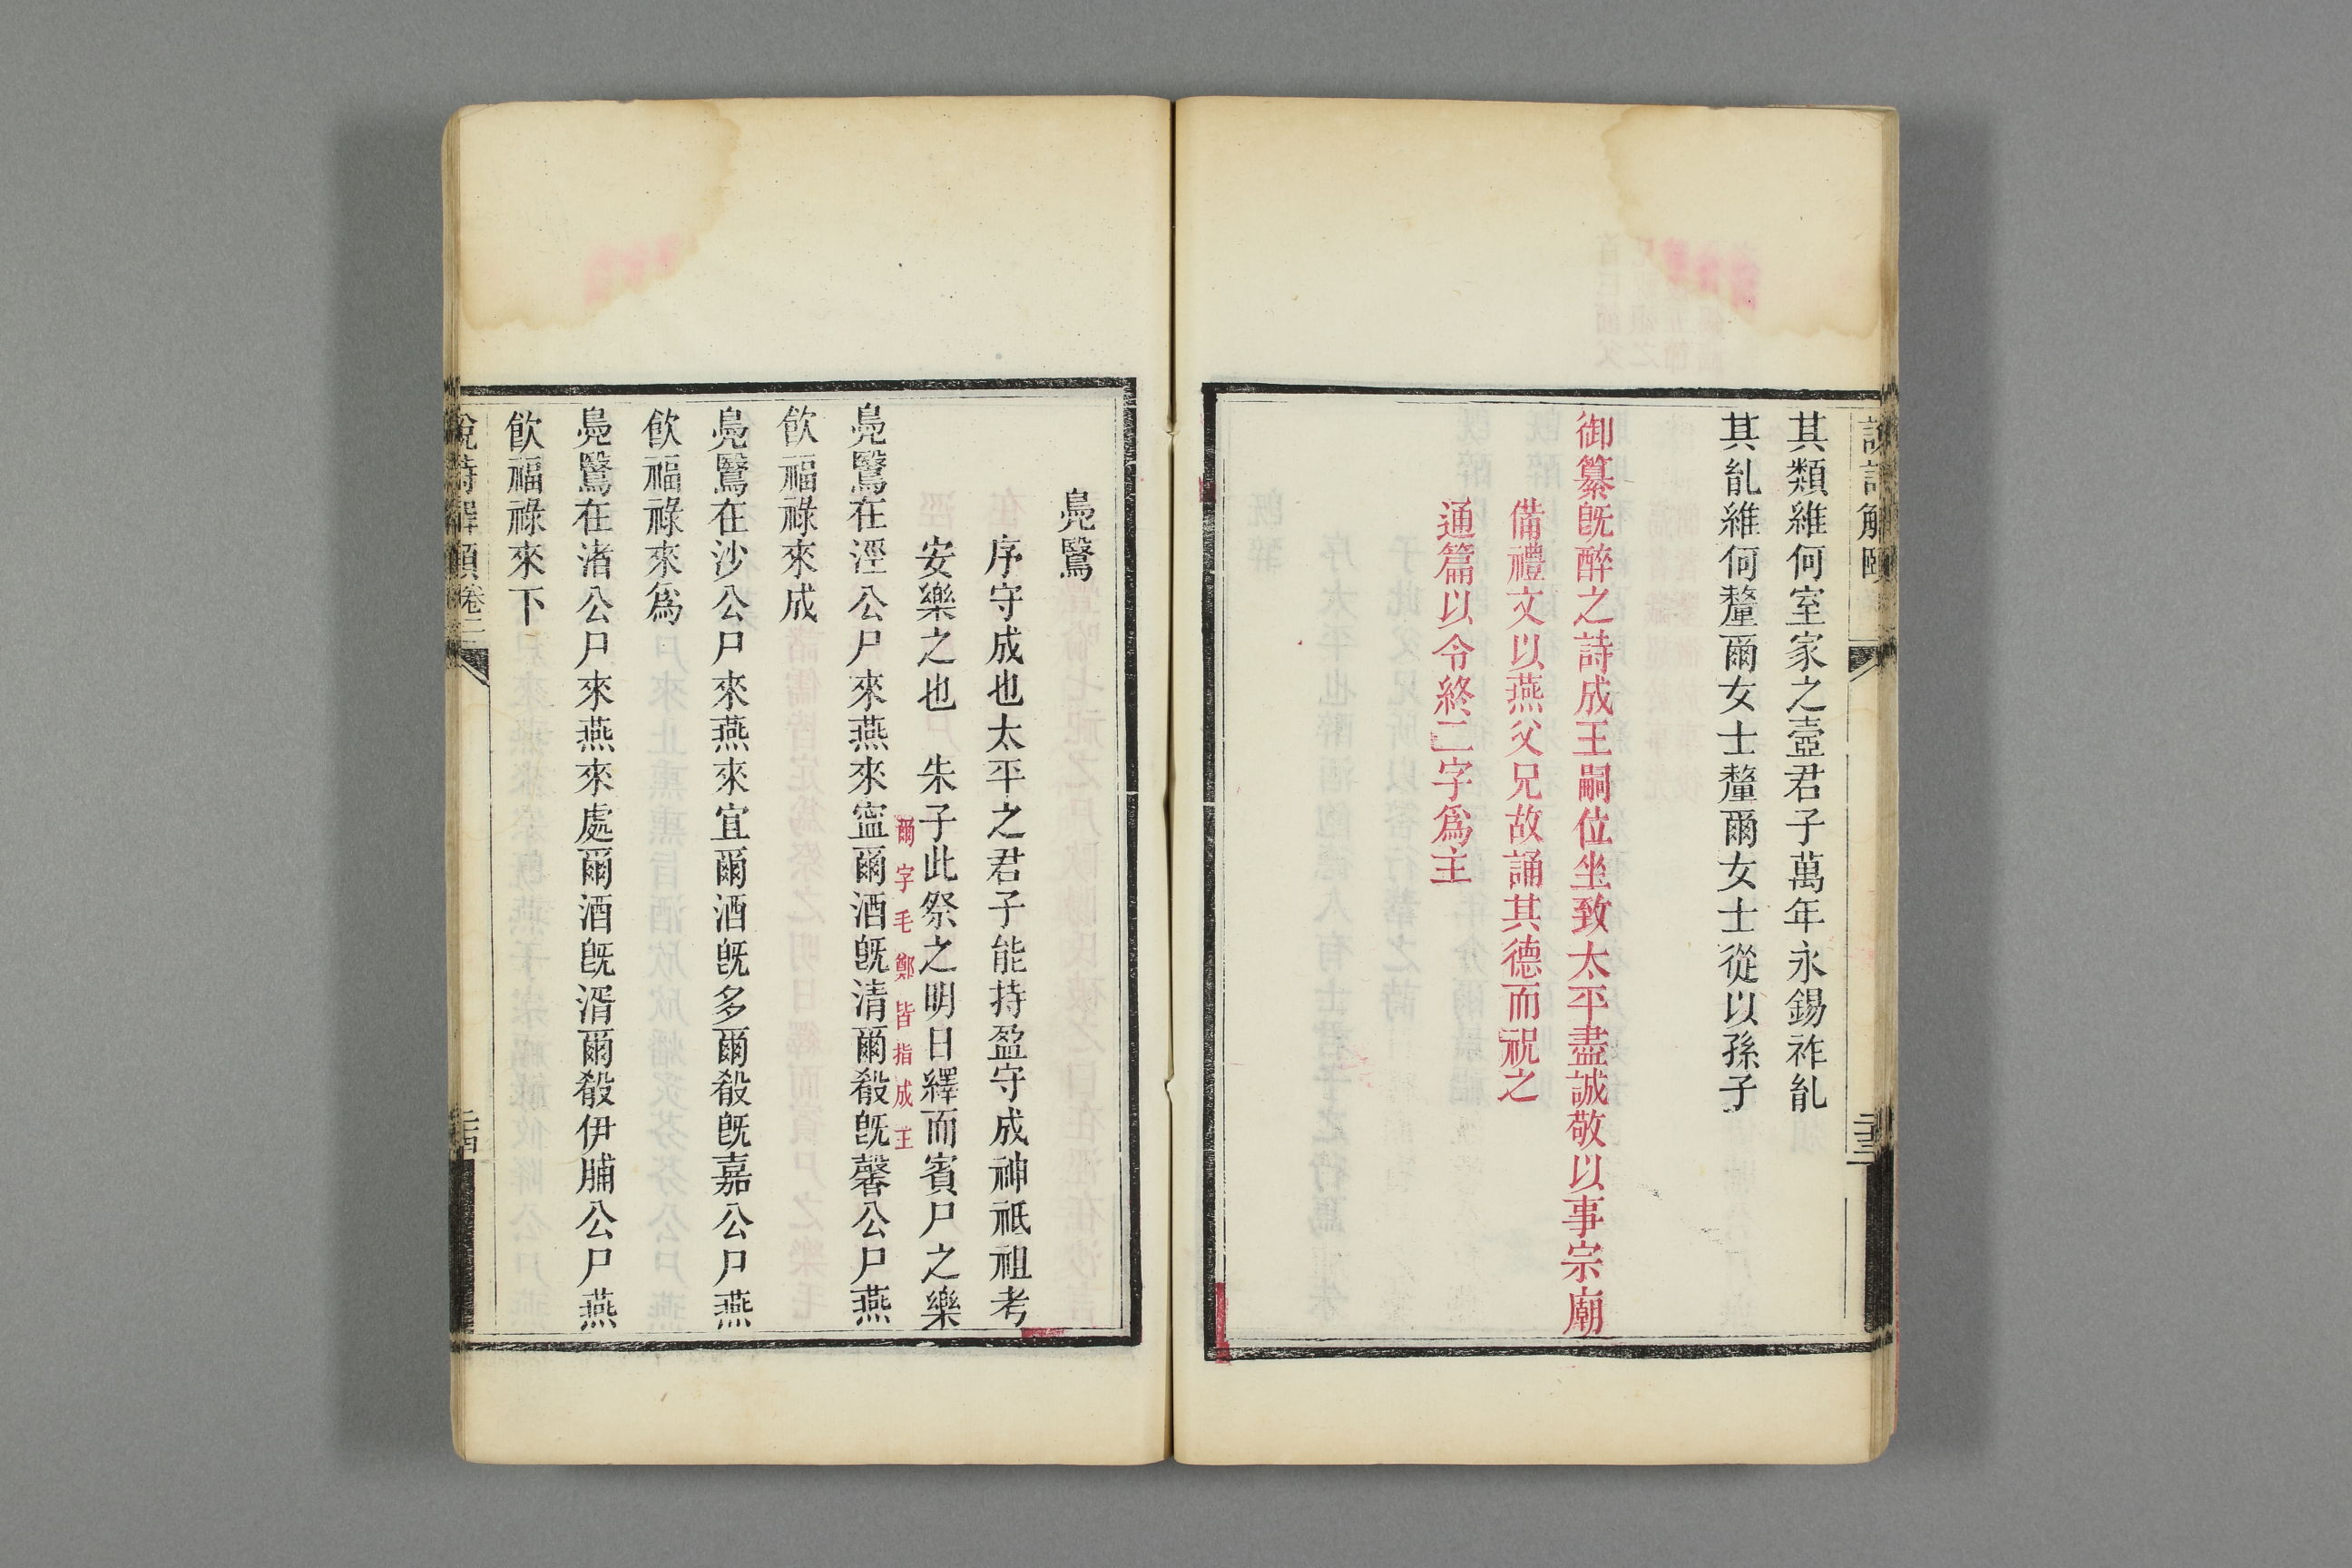 說詩解頤
二十三
其類維何室家之壼君子萬年永錫祚胤
其胤維何釐爾女士釐爾女士從以孫子
御纂旣醉之詩成王嗣位坐致太平盡誠敬以事宗廟
備禮文以燕父兄故誦其德而祝之
通篇以令終二字爲主
鳧鷖
序守成也太平之君子能持盈守成神祇祖考
安樂之也　朱子此祭之明日繹而賓尸之樂
爾字毛鄭皆指成王
鳧鷖在涇公尸來燕來寍爾酒旣清爾殽旣馨公尸燕
飮福祿來成
鳧鷖在沙公尸來燕來宜爾酒旣多爾殽旣嘉公尸燕
飮福祿來爲
鳧鷖在渚公尸來燕來處爾酒旣湑爾殽伊脯公尸燕
飮福祿來下
說詩解頤卷二
二十四